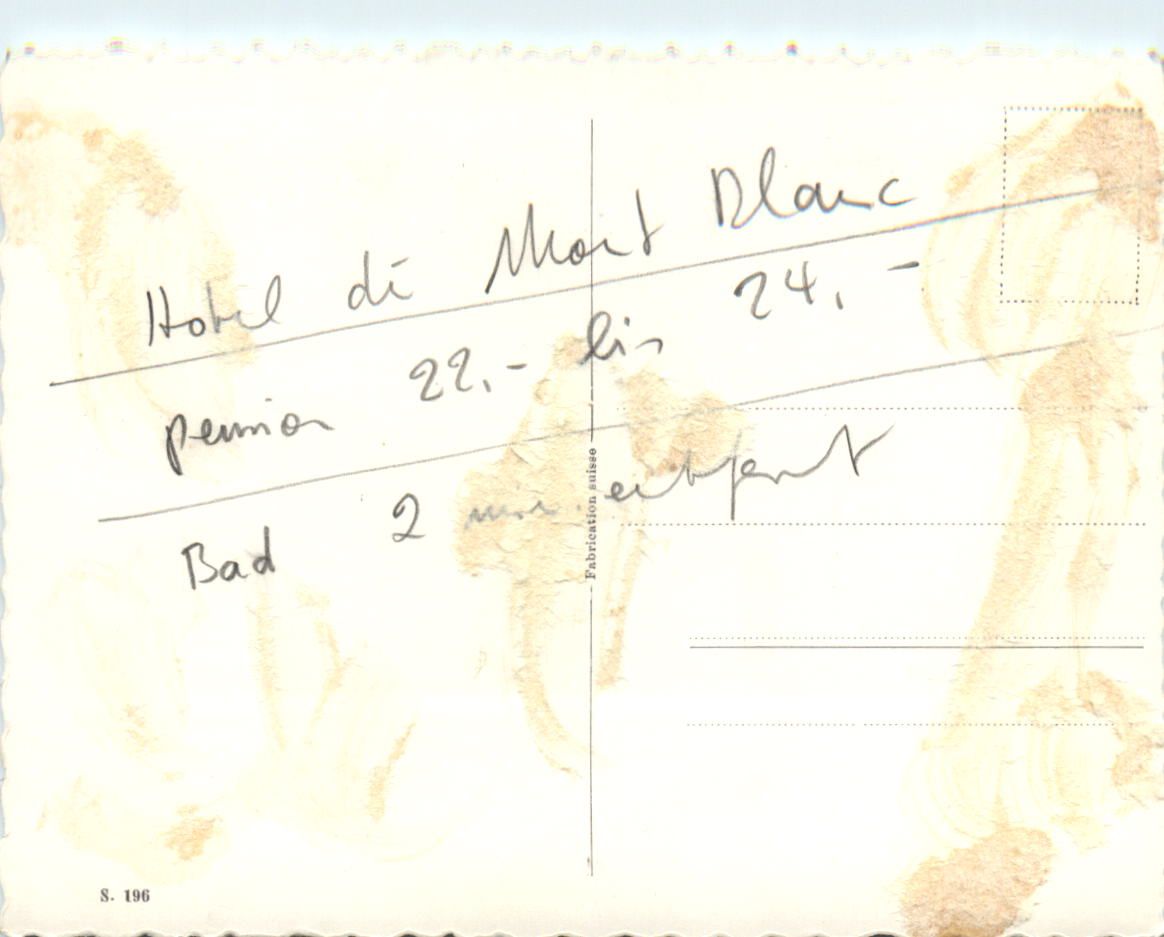 Hotel du Mont Blanc
pension 22.- bis 24.-
Bad 2 min. entfernt
Fabrication suisse
S. 196